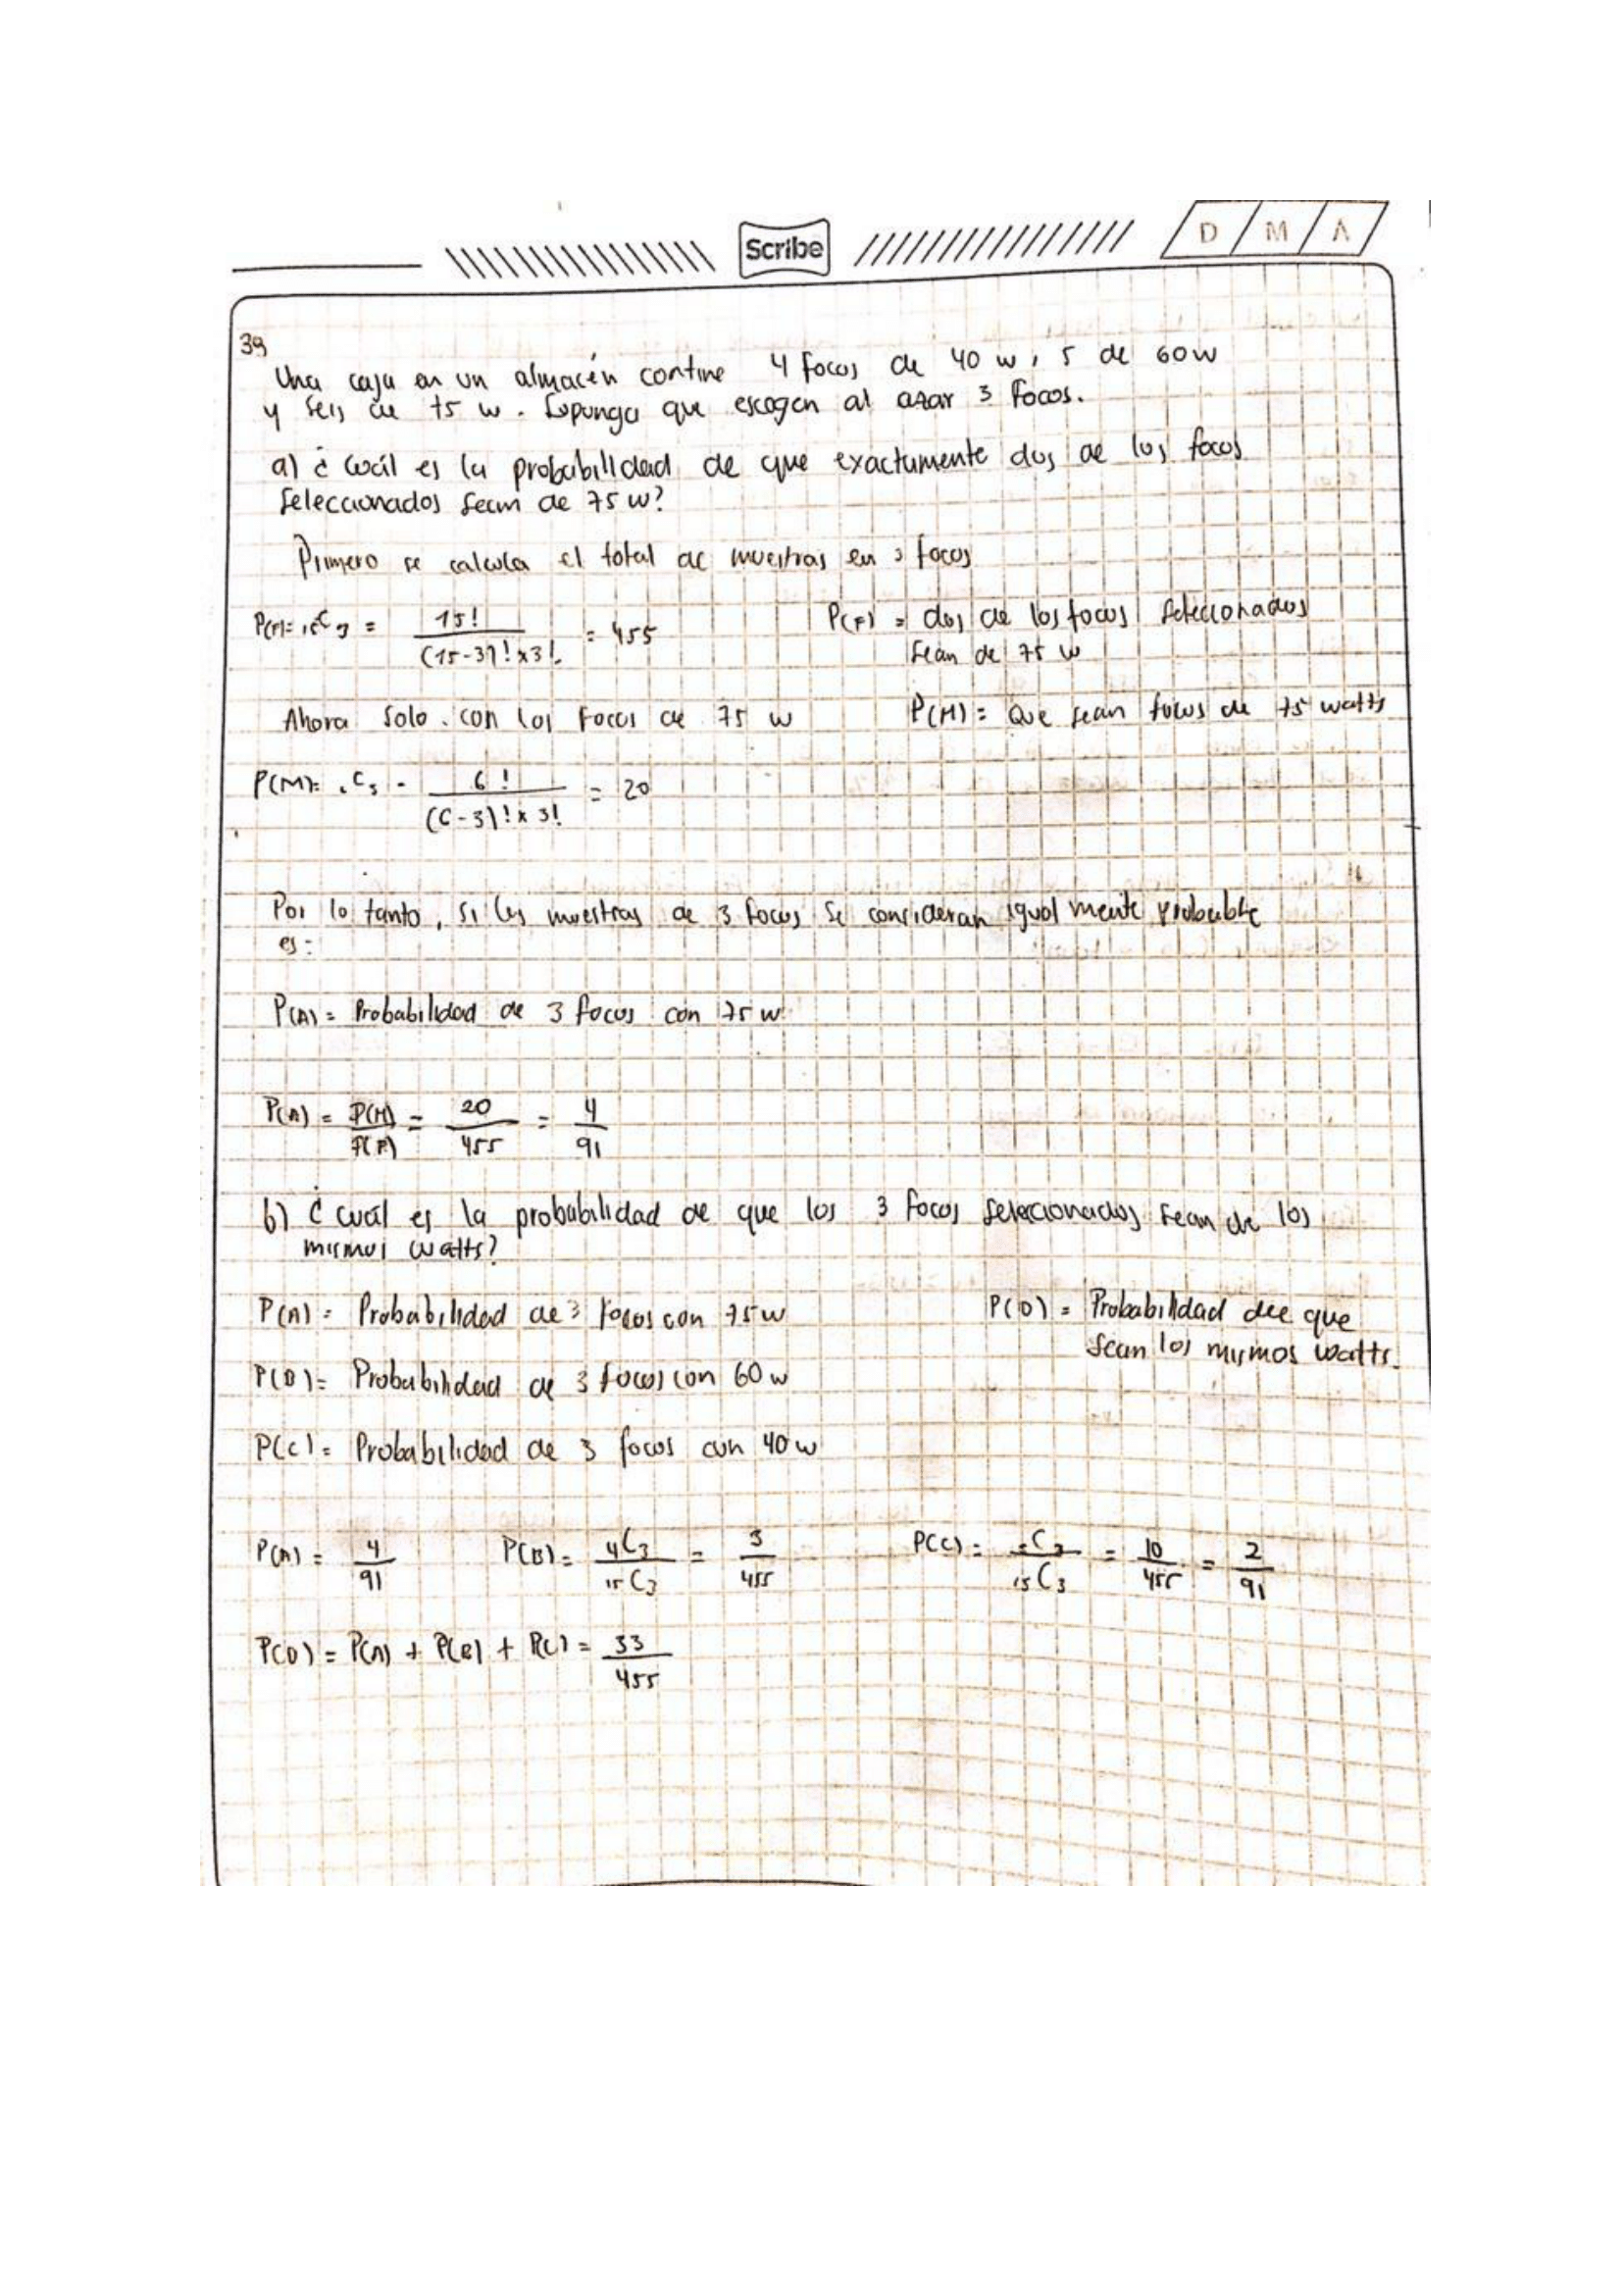 Scribe
D M A
39
Una caja en un almacén contine 4 focos de 40 w, 5 de 60w
y seis de 75 w. Suponga que escogen al azar 3 focos.
a) ¿Cuál es la probabilidad de que exactamente dos de los focos
seleccionados sean de 75 w?
Primero se calcula el total de muestras en 3 focos
P(F)= 15C3 = 15! / (15-3)! x 3! = 455
P(F) = dos de los focos selecionados
sean de 75 w
Ahora solo con los focos de 75 w
P(M) = Que sean focos de 75 watts
P(M)= 6C3 = 6! / (6-3)! x 3! = 20
Por lo tanto, si las muestras de 3 focos se consideran igual mente probable
es:
P(A) = Probabilidad de 3 focos con 75 w
P(A) = P(M) / P(F) = 20 / 455 = 4 / 91
b) ¿cuál es la probabilidad de que los 3 focos selecionados sean de los
mismos watts?
P(A) = Probabilidad de 3 focos con 75w
P(D) = Probabilidad dee que
sean los mismos watts.
P(B) = Probabilidad de 3 focos con 60 w
P(C) = Probabilidad de 3 focos con 40 w
P(A) = 4 / 91 P(B) = 4C3 / 15C3 = 3 / 455 P(C) = C3 / 15C3 = 10 / 455 = 2 / 91
P(D) = P(A) + P(B) + P(C) = 33 / 455